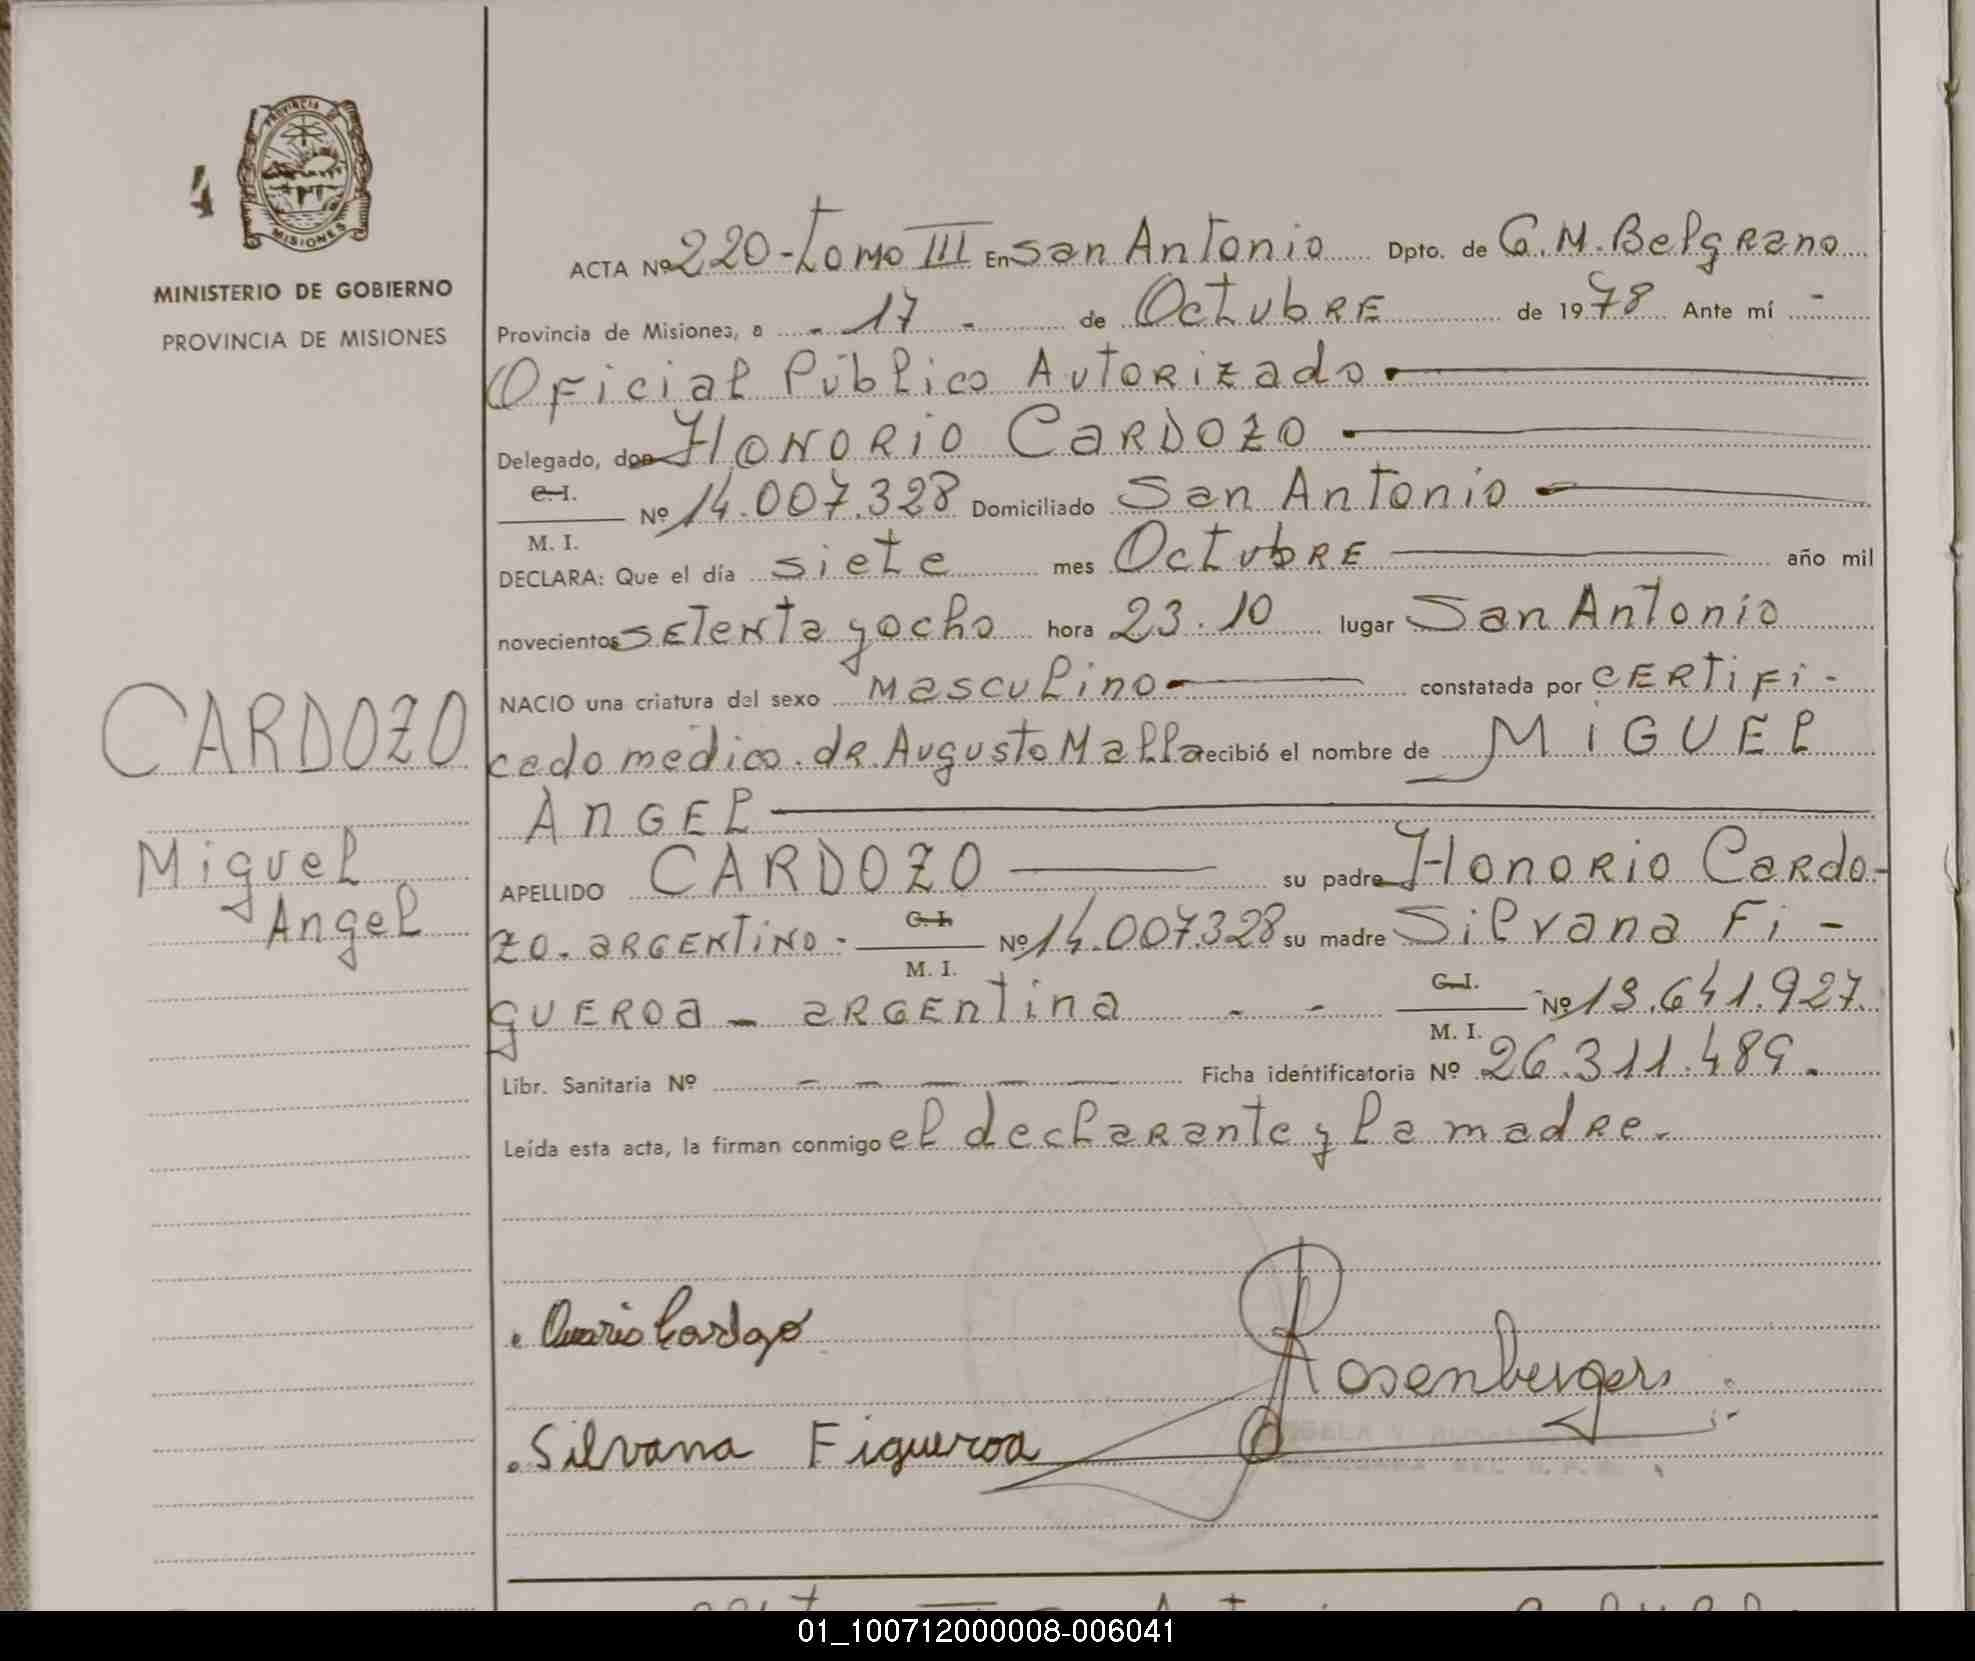 4
PROVINCIA DE
MISIONES
MINISTERIO DE GOBIERNO
PROVINCIA DE MISIONES
CARDOZO
Miguel
Angel
ACTA Nº 220-Tomo III En San Antonio Dpto. de G.M. Belgrano
Provincia de Misiones, a - 17 - de Octubre de 1978 Ante mí -
Oficial Público Autorizado
Delegado, don HONORIO CARDOZO
C.I.
M. I. Nº 14.007.328 Domiciliado San Antonio
DECLARA: Que el día siete mes Octubre año mil
novecientos setenta y ocho hora 23.10 lugar San Antonio
NACIO una criatura del sexo masculino constatada por certifi-
cado medico de Augusto Malla recibió el nombre de MIGUEL
ANGEL
APELLIDO CARDOZO su padre Honorio Cardo-
zo. argentino - C.I.
M. I. Nº 14.007.328 su madre Silvana Fi-
gueroa - argentina - - C.I.
M. I. Nº 13.641.927.
Libr. Sanitaria Nº - - - - - - Ficha identificatoria Nº 26.311.489.
Leída esta acta, la firman conmigo el declarante y la madre.
Cardozo
Rosenberger
Silvana Figueroa
01_100712000008-006041